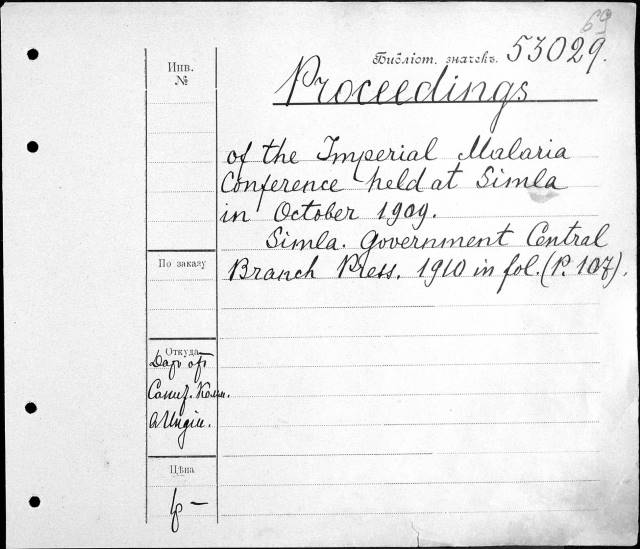 69
Библіот. значекъ. 53029.
Инв.
№
Proceedings
of the Imperial Malaria
Conference held at Simla
in October 1909.
Simla. Government Central
Branch Press. 1910 in fol. (P. 107).
По заказу
Откуда
Даръ отъ
Санит. Комм.
Индіи.
Цѣна